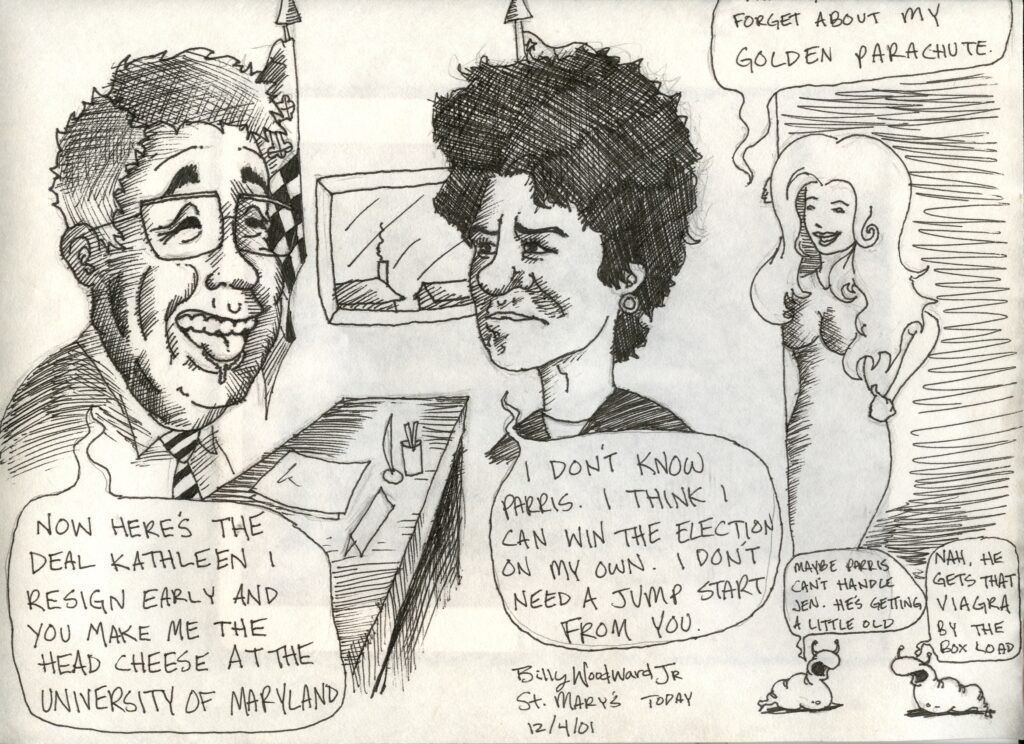 FORGET ABOUT MY
GOLDEN PARACHUTE.
NOW HERE'S THE
DEAL KATHLEEN I
RESIGN EARLY AND
YOU MAKE ME THE
HEAD CHEESE AT THE
UNIVERSITY OF MARYLAND
I DON'T KNOW
PARRIS. I THINK I
CAN WIN THE ELECTION
ON MY OWN. I DON'T
NEED A JUMP START
FROM YOU.
MAYBE PARRIS
CAN'T HANDLE
JEN. HE'S GETTING
A LITTLE OLD
NAH, HE
GETS THAT
VIAGRA
BY THE
BOX LOAD
Billy Woodward Jr
St. MARY'S TODAY
12/4/01